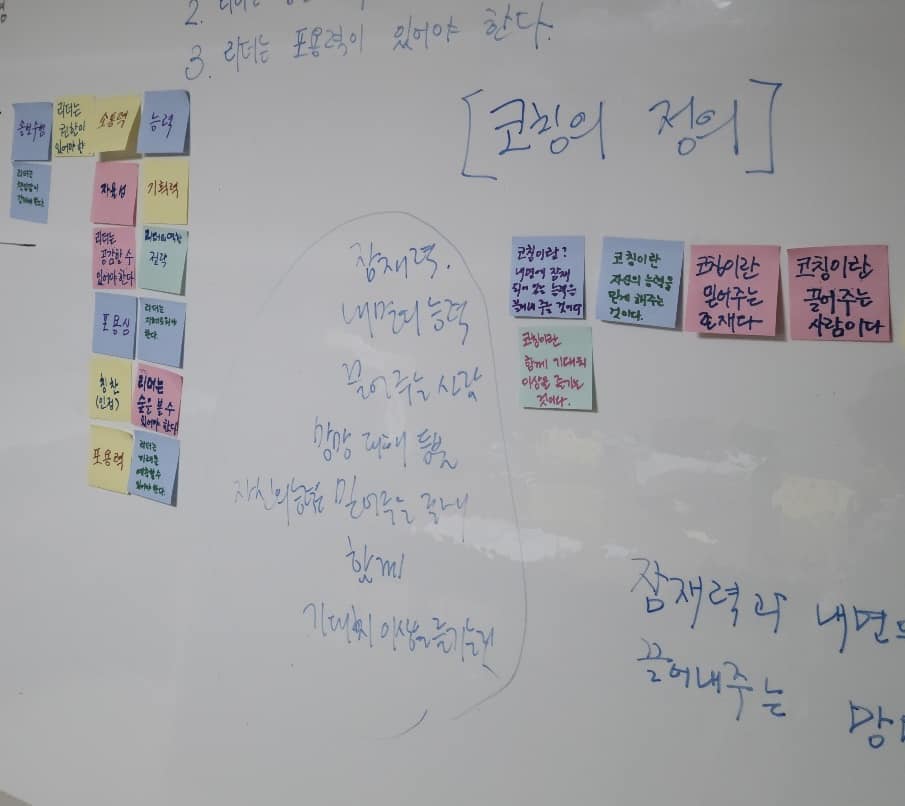 2. 리더는
3. 리더는 포용력이 있어야 한다.
[코칭의 정의]
솔선수범
리더는
권한이
있어야 함
소통력
능력
리더는
자율성
기획력
리더는
공감할 수
있어야한다
전략
포용심
리더는
한다.
칭찬
(인정)
리더는
숲을 볼 수
있어야 한다
포용력
리더는
미래를
예측할 수
있어야 한다.
잠재력.
내면의 능력
끌어주는 사람
망망대해 등불
자신의 능력 믿어주는
함께
기대치 이상을 즐기는 것
코칭이란?
내면에 잠재
되어 있는 능력을
것이다
코칭이란
자신의 능력을
믿게 해주는
것이다.
코칭이란
믿어주는
존재다
코칭이란
끌어주는
사람이다
코칭이란
함께 기대치
이상을 즐기는
것이다.
잠재력과 내면의
끌어내주는 망